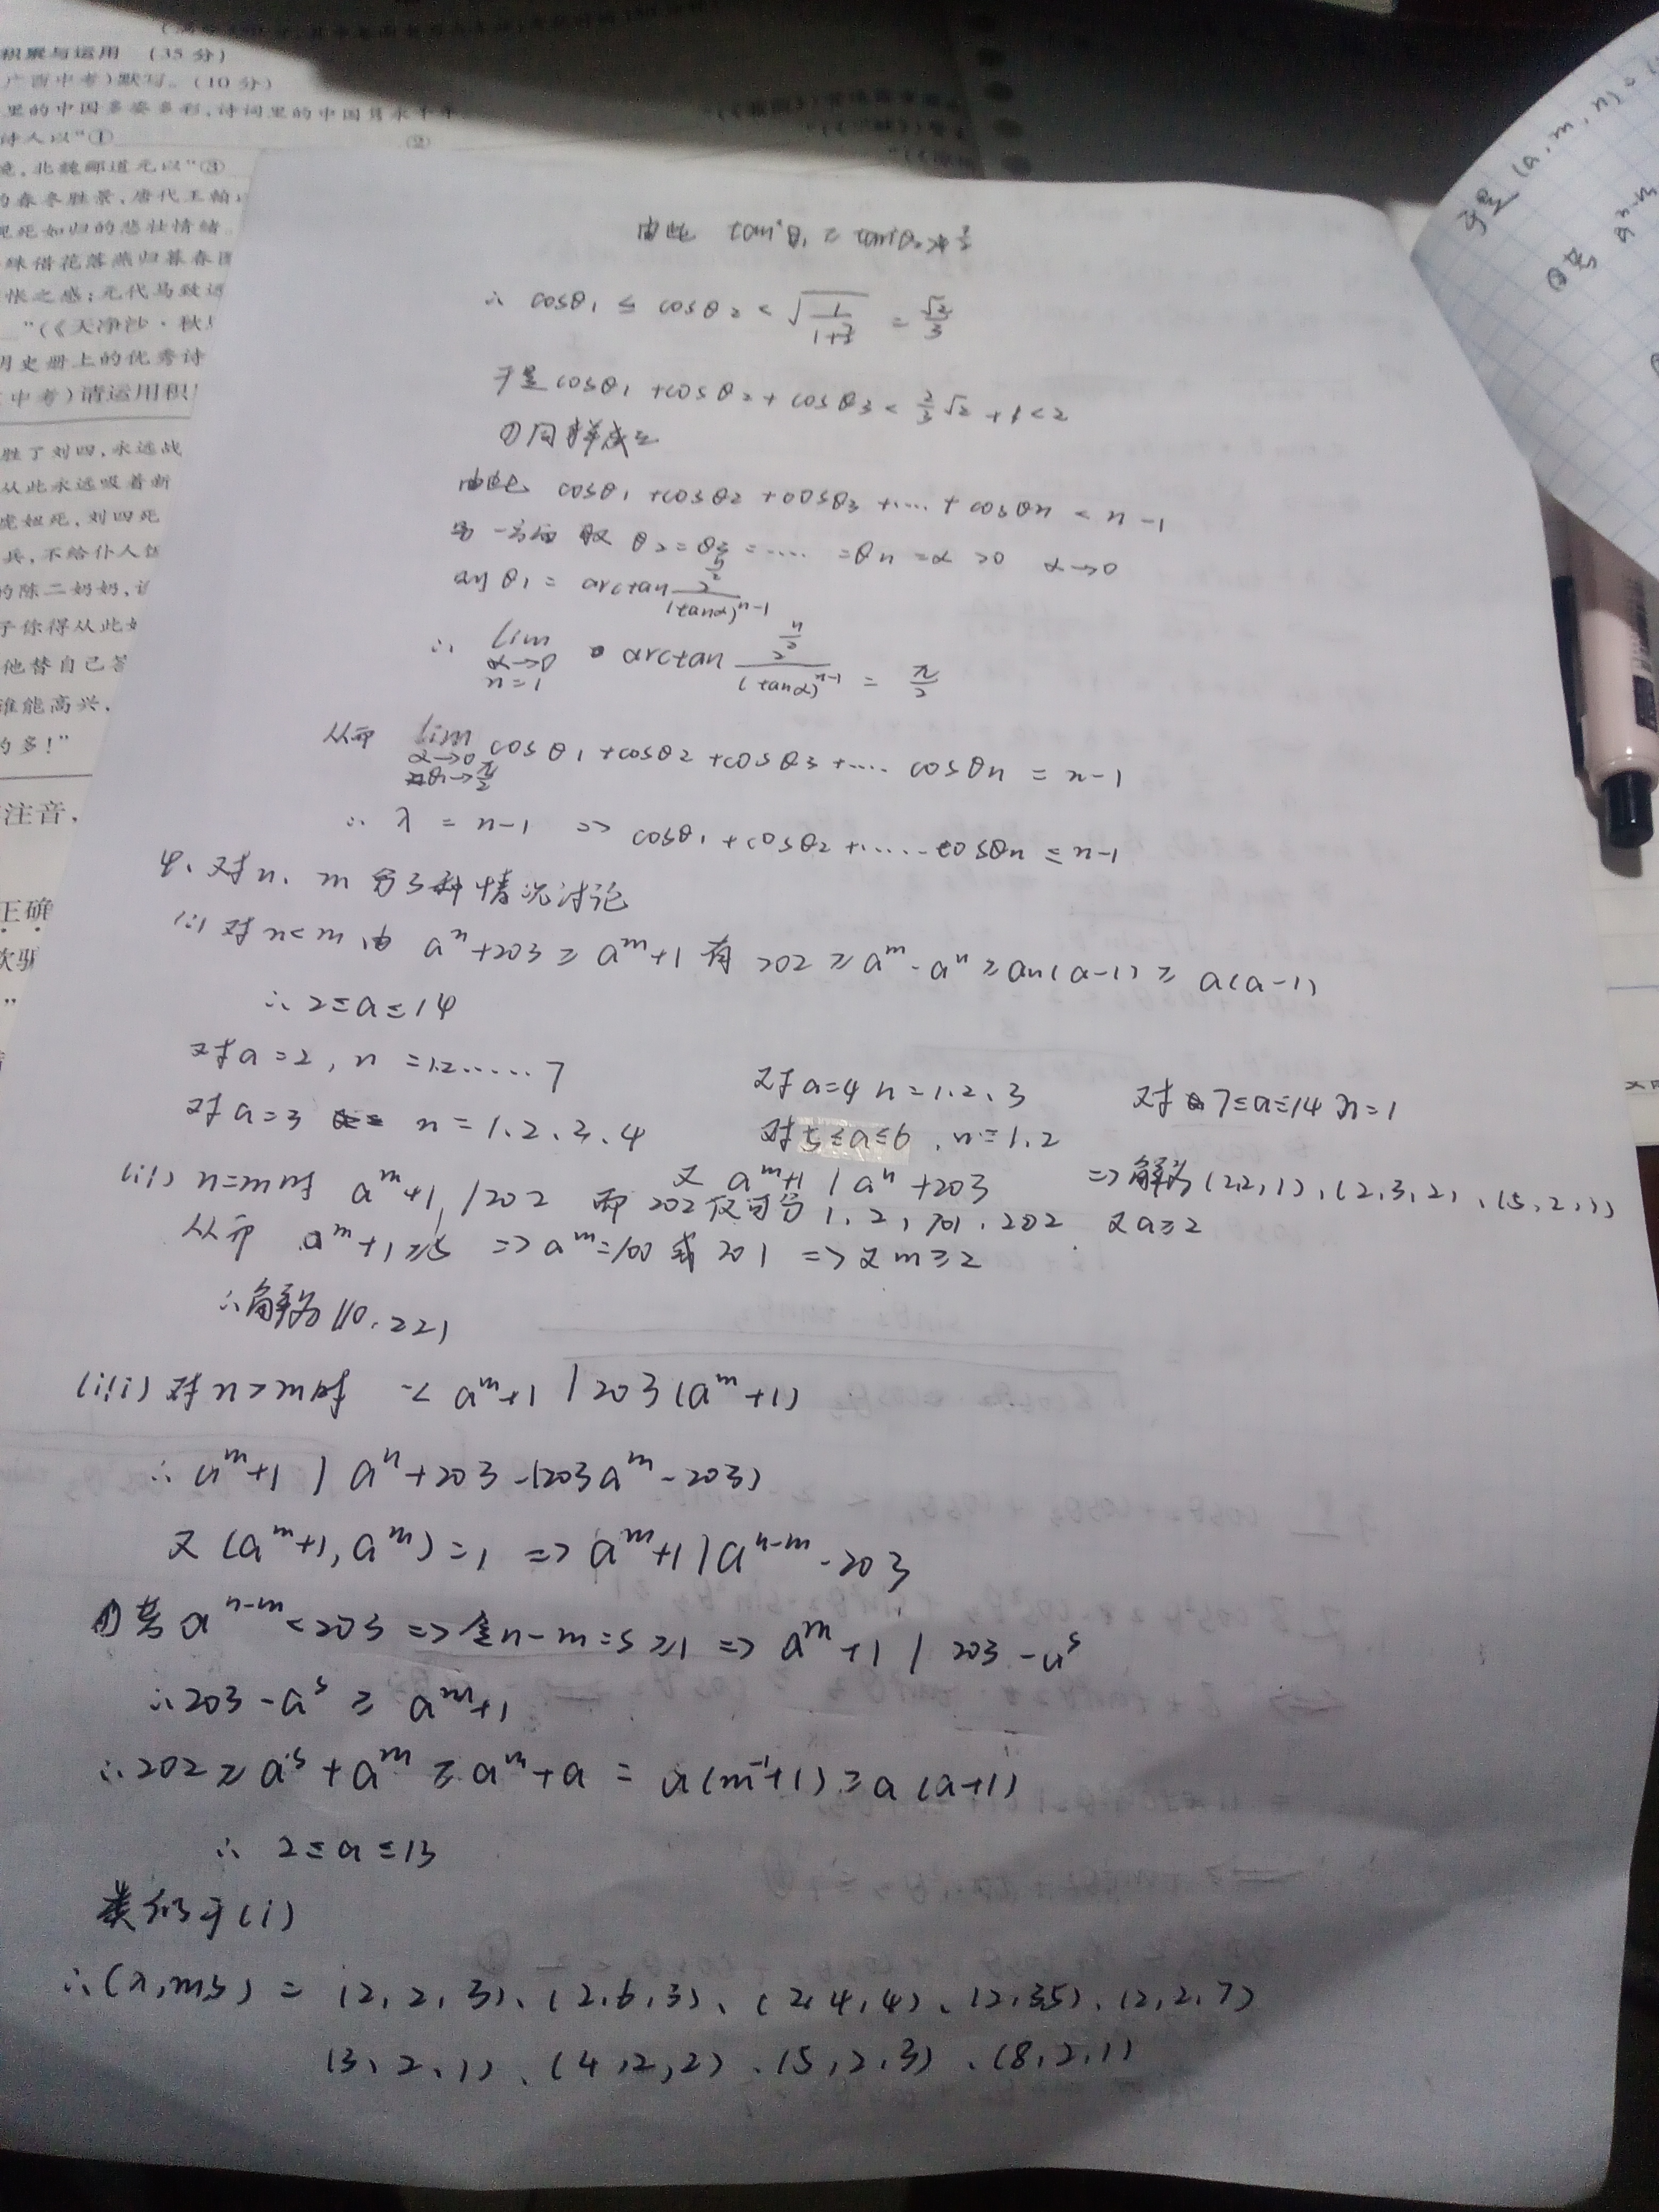 积累与运用 (35分)
广西中考)默写。(10分)
里的中国多姿多彩,诗词里的中国隽永千年
诗人以"①
②
北魏郦道元以"③
的春冬胜景,唐代王勃
视死如归的悲壮情绪。
借花落燕归暮春
怅之感;元代马致远
"(《天净沙·秋
明史册上的优秀诗
中考)请运用积
胜了刘四,永远战
从此永远吸着新
虎妞死,刘四死
兵,不给仆人饭
的陈二奶奶,
子你得从此
他替自己
谁能高兴,
的多!"
注音,
正确
由此 tan²θ₁ ≥ tan²θ₂ > 7/2
∴ cosθ₁ ≤ cosθ₂ < √(1/(1+7/2)) = √2/3
于是 cosθ₁ + cosθ₂ + cosθ₃ < 2/3 √2 + 1 < 2
①同样成立
由此 cosθ₁ + cosθ₂ + cosθ₃ + .... + cosθn < n-1
另一方面 取 θ₂ = θ₃ = .... = θn = α > 0 α→0
则 θ₁ = arctan 2^(n/2)/(tanα)^(n-1)
∴ lim α→0 n=1 arctan 2^(n/2)/(tanα)^(n-1) = π/2
从而 lim α→0 θ₁→π/2 cosθ₁ + cosθ₂ + cosθ₃ + .... cosθn = n-1
∴ λ = n-1 => cosθ₁ + cosθ₂ + ..... cosθn ≤ n-1
4. 对n、m分3种情况讨论
(i) 对n<m 由 aⁿ+203 ≥ aᵐ+1 有 202 ≥ aᵐ-aⁿ ≥ an(a-1) ≥ a(a-1)
∴ 2≤a≤14
对a=2, n=1.2.....7
对a=3 n=1、2、3、4
对a=4 n=1、2、3
对5≤a≤6, n=1、2
对7≤a≤14 n=1
又 aᵐ+1 | aⁿ+203 => 解为(2,2,1)、(2,3,2)、(5,2,1)
(ii) n=m时 aᵐ+1 | 202 而202仅可分1、2、101、202 又a≥2
从而 aᵐ+1≥5 => aᵐ=100或201 => 又m≥2
∴解为(10,2,2)
(iii) 对n>m时 ∵ aᵐ+1 | 203(aᵐ+1)
∴ aᵐ+1 | aⁿ+203-(203aᵐ-203)
又 (aᵐ+1, aᵐ)=1 => aᵐ+1 | aⁿ⁻ᵐ-203
①若 aⁿ⁻ᵐ<203 => 令n-m=s≥1 => aᵐ+1 | 203-aˢ
∴203-aˢ ≥ aᵐ+1
∴202 ≥ aˢ+aᵐ ≥ aᵐ+a = a(m⁻¹+1) ≥ a(a+1)
∴ 2≤a≤13
类似于(i)
∴(a,m,s) = (2,2,3)、(2,6,3)、(2,4,4)、(2,3,5)、(2,2,7)
(3、2、1)、(4,2,2)、(5,2,3)、(8,2,1)
于是(a,m,n)=
②若 aⁿ⁻ᵐ